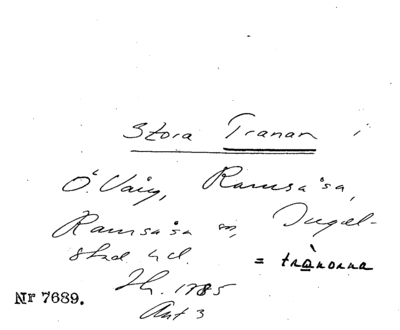 Stora Tranan
Ö. Vång, Ramsåsa,
Ramsåsa sn, Ingel-
stad hd.
= trànorna
Nr 7689.
1785
Akt 3